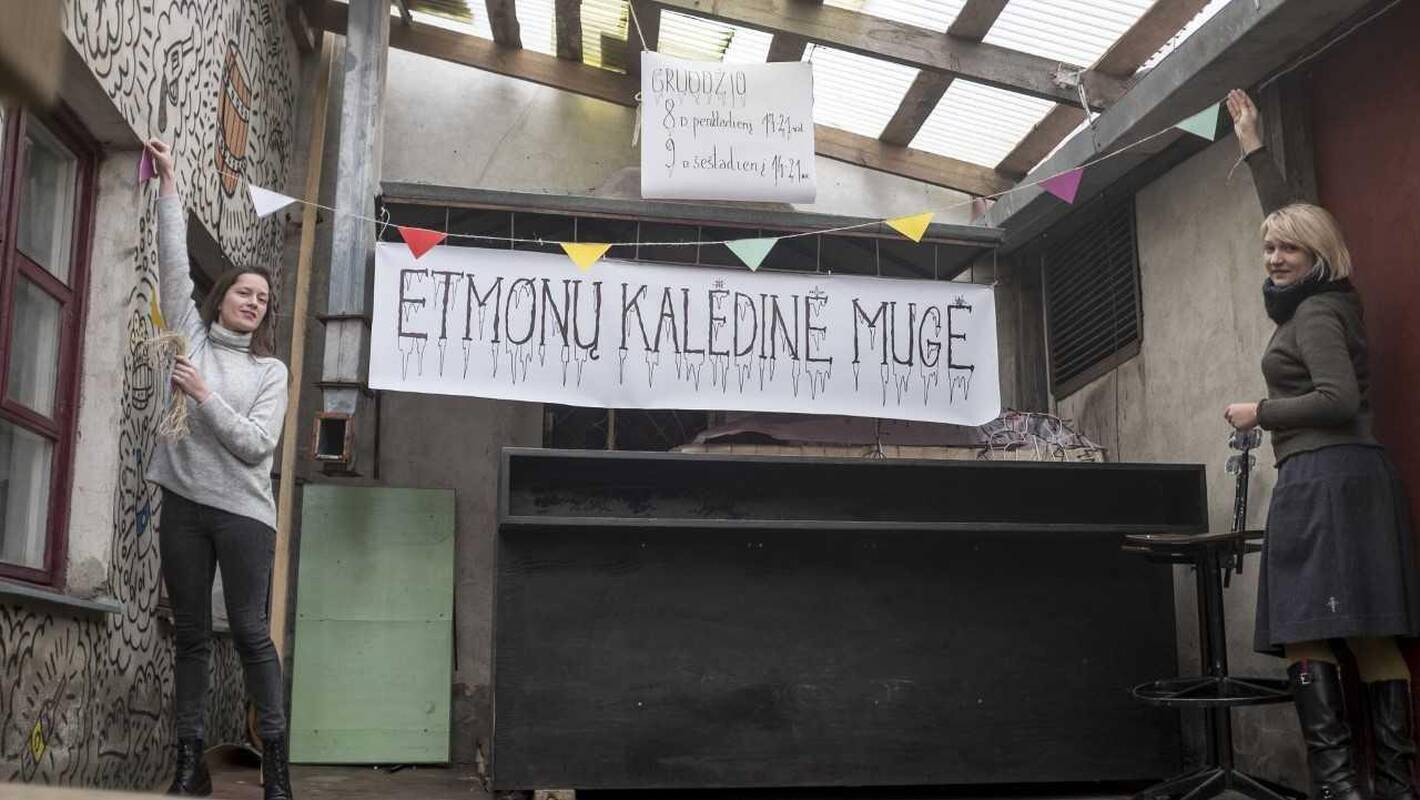 GRUODŽIO
8 D. penktadienį 14-21 val
9 D šeštadienį 14-21 val
ETMONŲ KALĖDINĖ MUGĖ